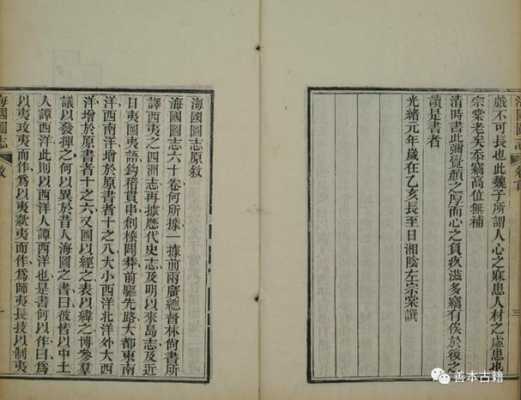 戲不可長也此魏子所謂人心之寐患人材之虛患也
宗棠老矣忝竊高位無補
清時書此彌覺顏之厚而心之負疚滋多竊有俟於後之
讀是書者
光緒元年歲在乙亥長至日湘陰左宗棠譔
海國圖志原敘
海國圖志六十卷何所據一據前兩廣總督林尚書所
譯西夷之四洲志再據歷代史志及明以來島志及近
日夷圖夷語鈎稽貫串創榛闢莽前驅先路大都東南
洋西南洋增於原書者十之八大小西洋北洋外大西
洋增於原書者十之六又圖以經之表以緯之博參羣
議以發揮之何以異於昔人海圖之書曰彼皆以中土
人譚西洋此則以西洋人譚西洋也是書何以作曰爲
以夷攻夷而作爲以夷款夷而作爲師夷長技以制夷
海國圖志 敘
善本古籍